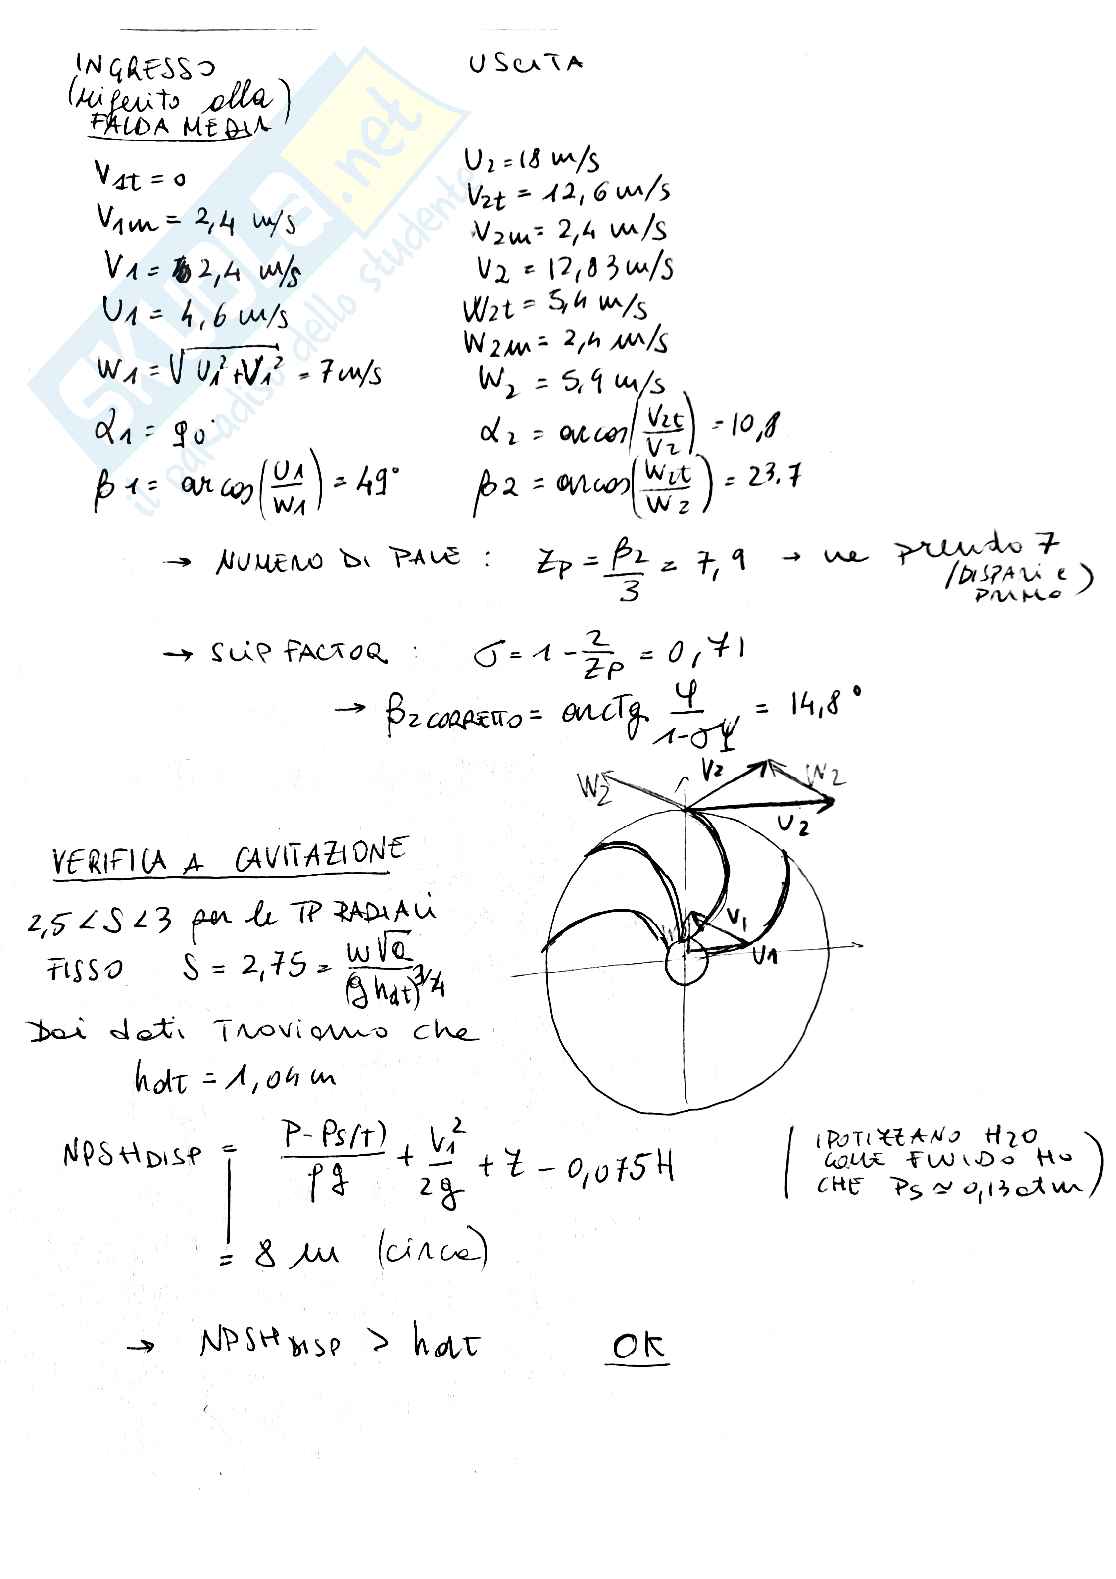 INGRESSO
(riferito alla)
FALDA MEDIA
V1t = 0
V1m = 2,4 m/s
V1 = 2,4 m/s
U1 = 4,6 m/s
W1 = √(U1² + V1²) = 7 m/s
α1 = 90°
β1 = arcos(U1/W1) = 49°
USCITA
U2 = 18 m/s
V2t = 12,6 m/s
V2m = 2,4 m/s
V2 = 12,83 m/s
W2t = 5,4 m/s
W2m = 2,4 m/s
W2 = 5,9 m/s
α2 = arcos(V2t/V2) = 10,8
β2 = arcos(W2t/W2) = 23.7
→ NUMERO DI PALE : Zp = β2/3 = 7,9 → ne prendo 7
(DISPARI e
PRIMO)
→ SLIP FACTOR : σ = 1 - 2/Zp = 0,71
→ β2 CORRETTO = arctg φ/(1-σψ) = 14,8°
W2 V2 W2
U2
V1
U1
VERIFICA A CAVITAZIONE
2,5 < S < 3 per le TP RADIALI
FISSO S = 2,75 = ω√Q/(g hdt)^3/4
Dai dati Troviamo che
hdt = 1,04 m
NPSH DISP = (P - Ps(t))/ρg + V1²/2g + Z - 0,075H
(IPOTIZZANO H2O
COME FLUIDO HO
CHE Ps ≃ 0,13 atm)
= 8 m (circa)
→ NPSH DISP > hdt OK
SKUOLA.net
il paradiso dello studente